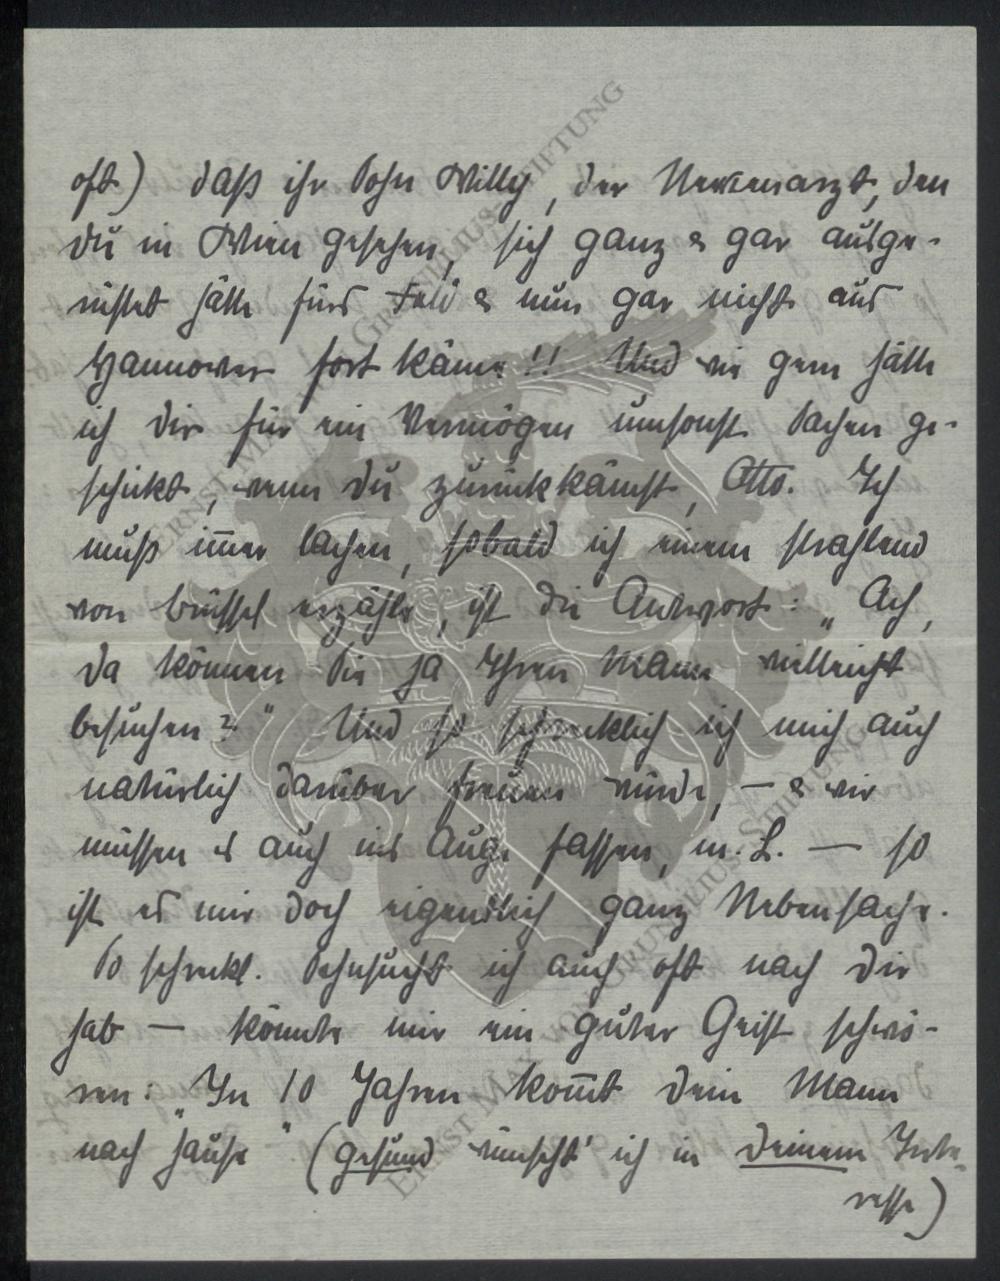 oft) daß ihr Sohn Willy, der Nervenarzt, den
du in Wien gesehen, sich ganz & gar ausge-
rüstet hätte fürs Feld & nun gar nicht aus
Hannover fort käme!! Und wie gern hätte
ich dir für ein Vermögen umsonst Sachen ge-
schickt, wenn du zurückkämst, Otto. Ich
muß im̅er lachen, sobald ich einem strahlend
von Brüssel erzähle, ist die Antwort: „Ach,
da können Sie ja Ihren Mann vielleicht
besuchen?" Und so schrecklich ich mich auch
natürlich darüber freuen würde, — & wir
müssen es auch ins Auge fassen, m. L. — so
ist es mir doch eigentlich ganz Nebensache.
So schreckl. Sehnsucht ich auch oft nach dir
hab — könnte mir ein guter Geist schwö-
ren: „In 10 Jahren kom̅t dein Mann
nach Hause". (gesund wünscht' ich in deinem Inte-
resse)
ERNST MAX VON GRUNELIUS-STIFTUNG
ERNST MAX VON GRUNELIUS-STIFTUNG